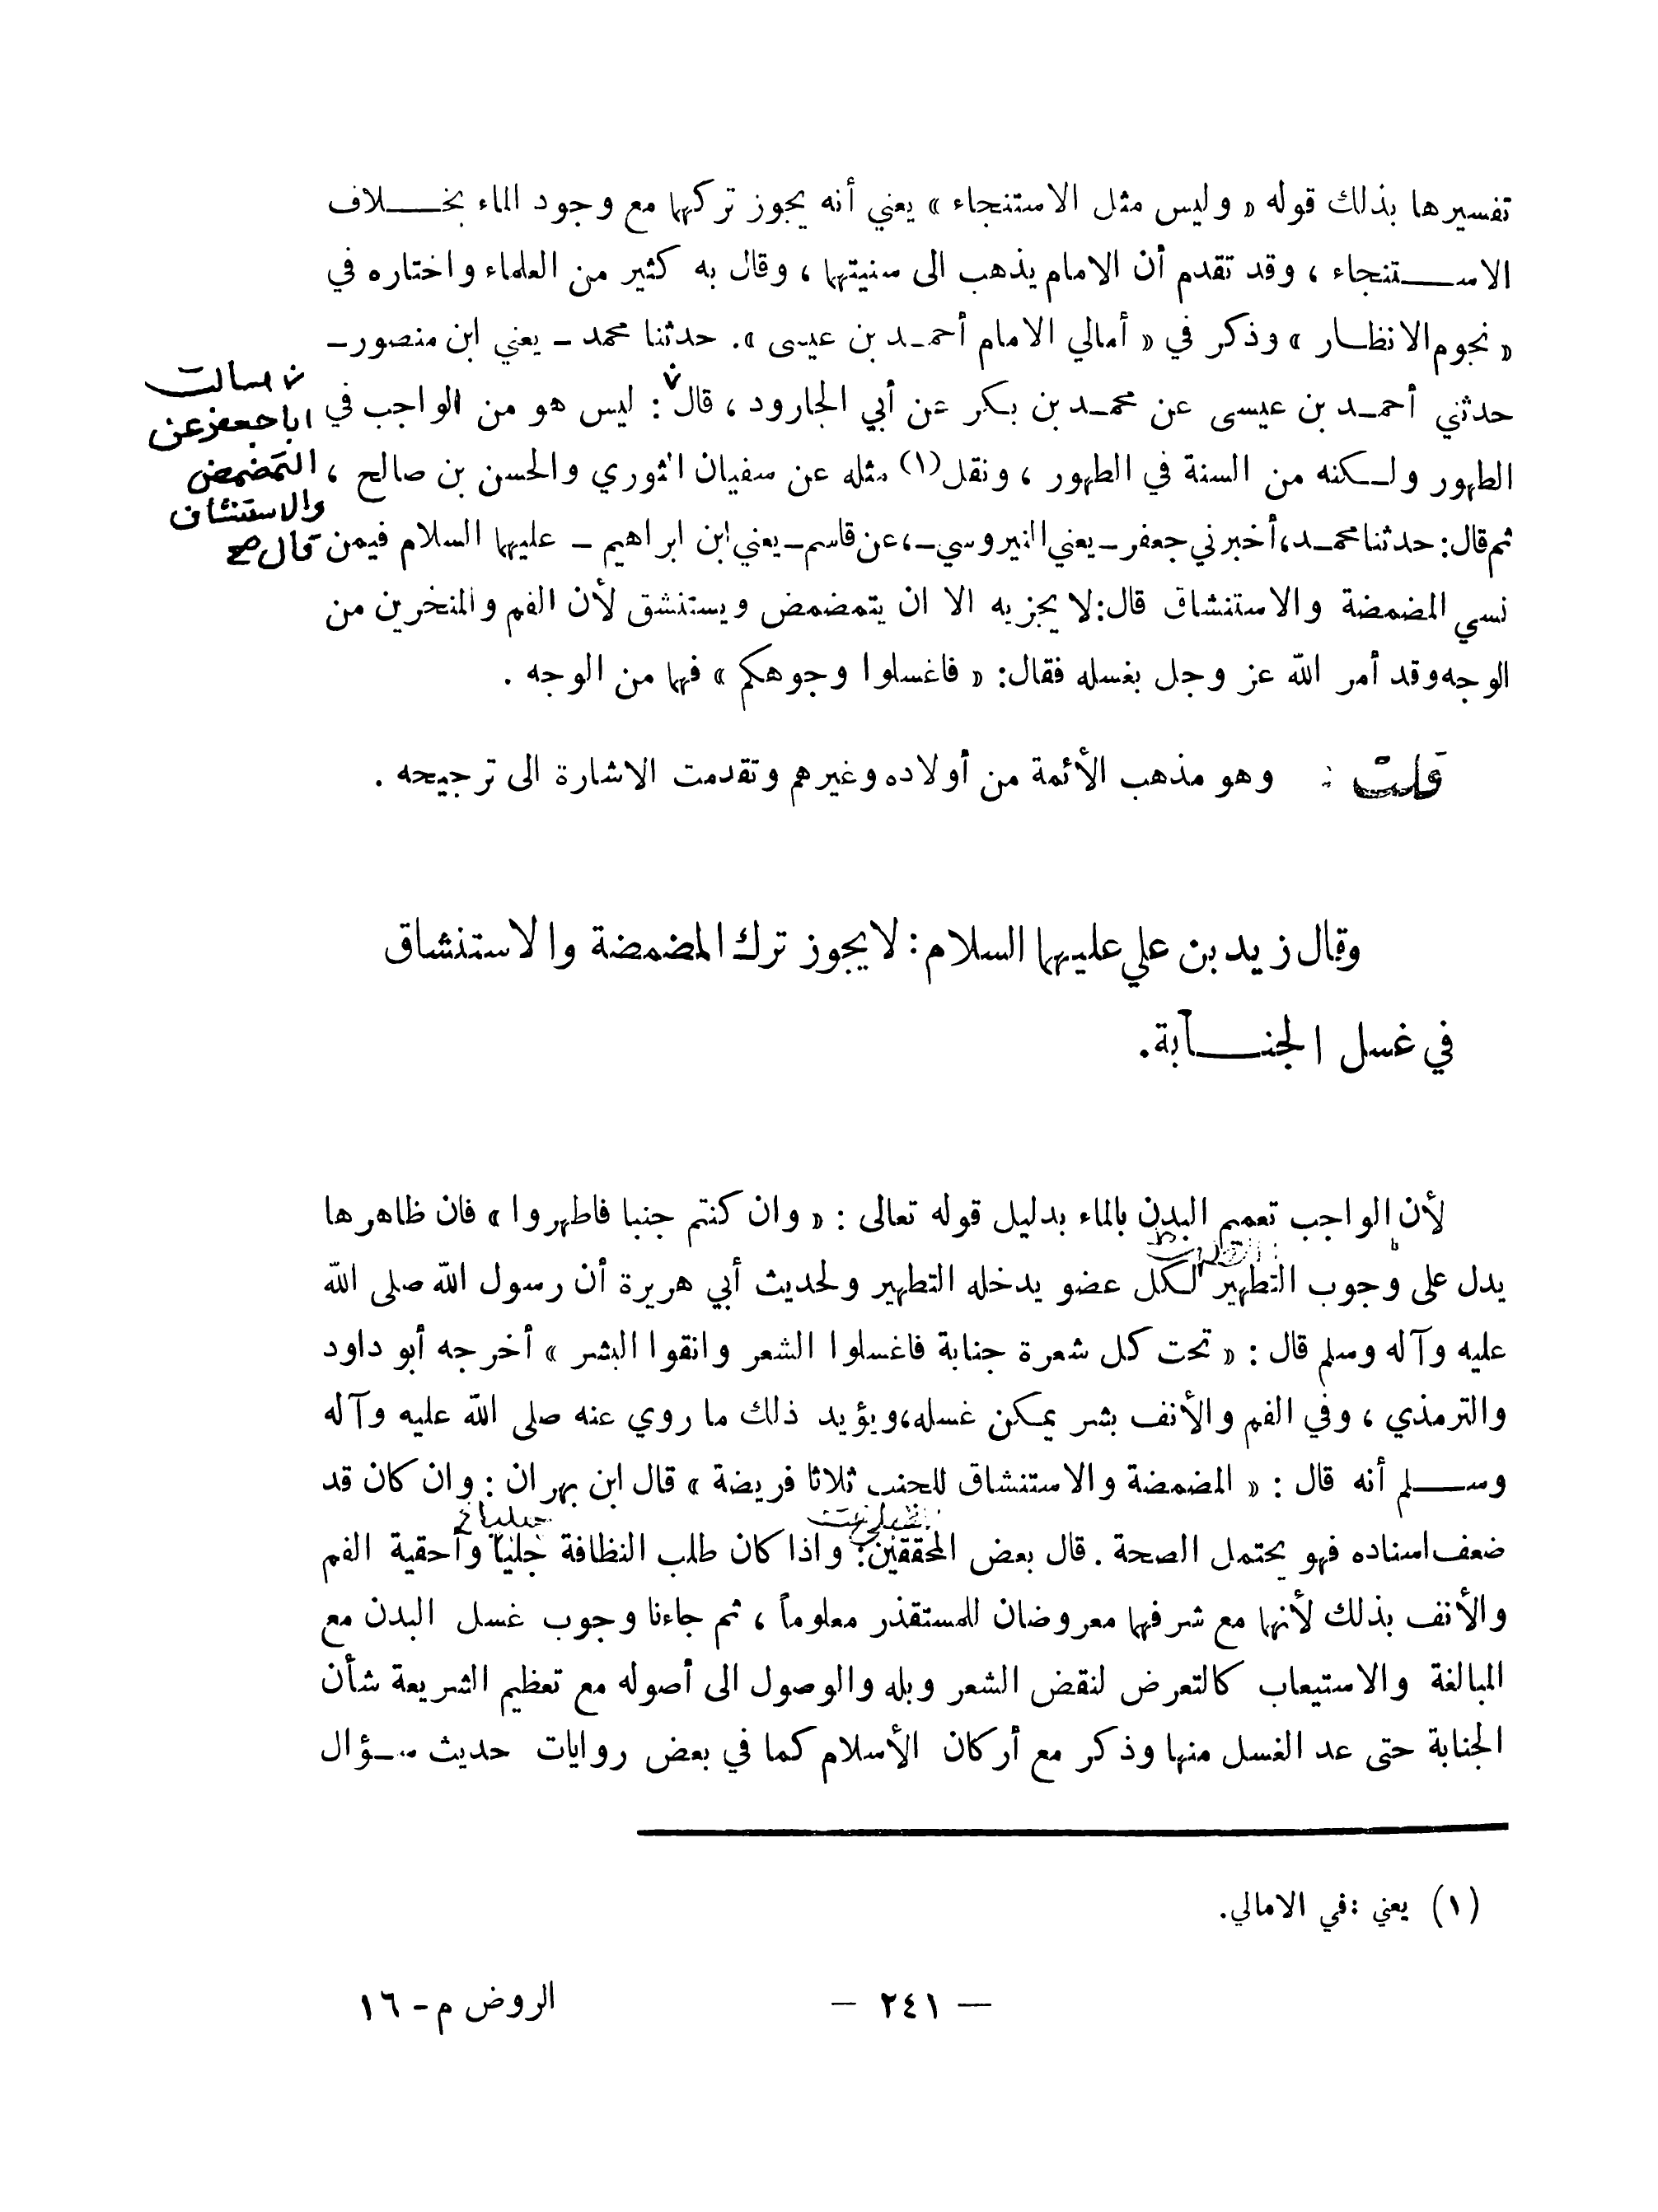 تفسيرها بذلك قوله « وليس مثل الاستنجاء » يعني أنه يجوز تركها مع وجود الماء بخلاف
الاستنجاء ، وقد تقدم أن الامام يذهب الى سنيتها ، وقال به كثير من العلماء واختاره في
« نجوم الانظار » وذكر في « أمالي الامام أحمد بن عيسى ». حدثنا محمد – يعني ابن منصور –
حدثني أحمد بن عيسى عن محمد بن بكر عن أبي الجارود ، قال : ليس هو من الواجب في
الطهور ولكنه من السنة في الطهور ، ونقل (١) مثله عن سفيان الثوري والحسن بن صالح ،
ثم قال : حدثنا محمد، أخبرني جعفر – يعني النيروسي –، عن قاسم – يعني ابن ابراهيم – عليهما السلام فيمن
نسي المضمضة والاستنشاق قال: لا يجزيه الا ان يتمضمض ويستنشق لأن الفم والمنخرين من
الوجه وقد أمر الله عز وجل بغسله فقال: « فاغسلوا وجوهكم » فهما من الوجه .
سالت
ابا جعفر عن
التمضمض
والاستنشاق
قال صح
قلت : وهو مذهب الأئمة من أولاده وغيرهم وتقدمت الاشارة الى ترجيحه .
وقال زيد بن علي عليهما السلام : لا يجوز ترك المضمضة والاستنشاق
في غسل الجنابة.
لأن الواجب تعميم البدن بالماء بدليل قوله تعالى : « وان كنتم جنبا فاطهروا » فان ظاهرها
يدل على وجوب التطهير لكل عضو يدخله التطهير ولحديث أبي هريرة أن رسول الله صلى الله
عليه وآله وسلم قال : « تحت كل شعرة جنابة فاغسلوا الشعر وانقوا البشر » أخرجه أبو داود
والترمذي ، وفي الفم والأنف بشر يمكن غسله، ويؤيد ذلك ما روي عنه صلى الله عليه وآله
وسلم أنه قال : « المضمضة والاستنشاق للجنب ثلاثا فريضة » قال ابن بهران : وان كان قد
ضعف اسناده فهو يحتمل الصحة . قال بعض المحققين : واذا كان طلب النظافة جلياً وأحقية الفم
والأنف بذلك لأنهما مع شرفهما معروضان للمستقذر معلوماً ، ثم جاءنا وجوب غسل البدن مع
المبالغة والاستيعاب كالتعرض لنقض الشعر وبله والوصول الى أصوله مع تعظيم الشريعة شأن
الجنابة حتى عد الغسل منها وذكر مع أركان الأسلام كما في بعض روايات حديث سؤال
(١) يعني : في الامالي.
— ٢٤١ — الروض م – ١٦